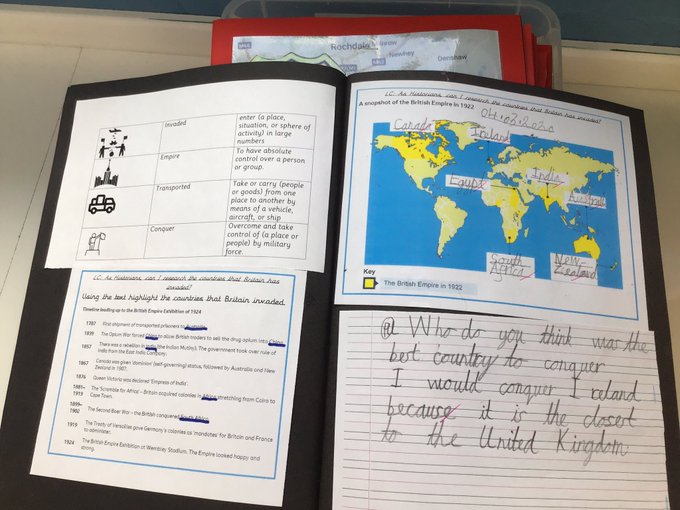 Rochdale
Milnrow
Newhey
Denshaw
Invaded
enter (a place,
situation, or sphere of
activity) in large
numbers
Empire
To have absolute
control over a person
or group.
Transported
Take or carry (people
or goods) from one
place to another by
means of a vehicle,
aircraft, or ship
Conquer
Overcome and take
control of (a place or
people) by military
force.
LC: As Historians, can I research the countries that Britain has
invaded?
Using the text highlight the countries that Britain invaded.
Timeline leading up to the British Empire Exhibition of 1924
1787 First shipment of transported prisoners to Australia.
1839 The Opium War forced China to allow British traders to sell the drug opium into China.
1857 There was a rebellion in India (the Indian Mutiny). The government took over rule of
India from the East India Company.
1867 Canada was given 'dominion' (self-governing) status, followed by Australia and New
Zealand in 1907.
1876 Queen Victoria was declared 'Empress of India'.
1881– The 'Scramble for Africa' – Britain acquired colonies in Africa stretching from Cairo to
1919 Cape Town.
1899– The Second Boer War – the British conquered South Africa.
1902
1919 The Treaty of Versailles gave Germany's colonies as 'mandates' for Britain and France
to administer.
1924 The British Empire Exhibition at Wembley Stadium. The Empire looked happy and
strong.
LC: As Historians can I research the countries that Britain has invaded?
A snapshot of the British Empire in 1922
04.03.2020
Canada
Ireland
India
Egypt
Australia
South
Africa
New-
Zealand
Key
The British Empire in 1922
Who do you think was the
best country to conquer
I would conquer Ireland
because it is the closest
to the United Kingdom